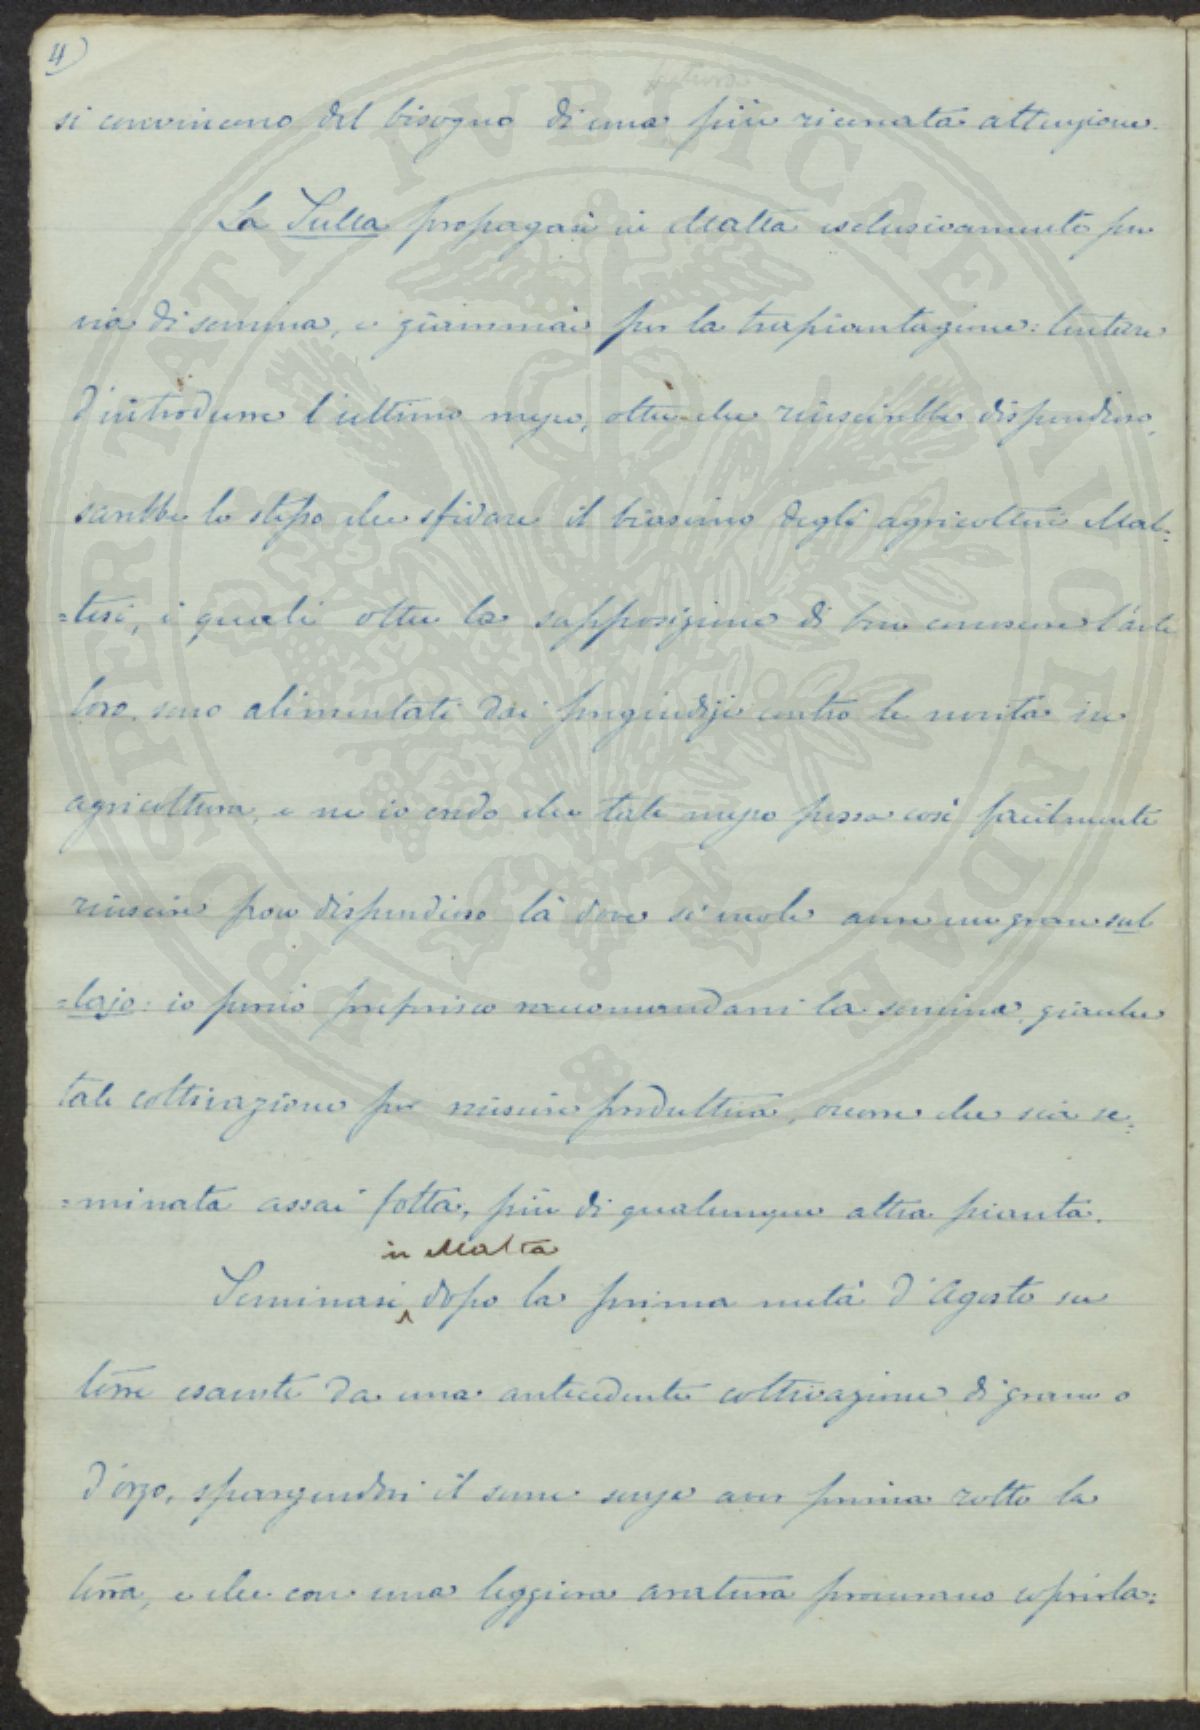 4)
si convincono del bisogno di una più ricercata attenzione.
La Sulla propagasi in Malta esclusivamente per
via di semina, e giammai per la trapiantazione: tentare
d'introdurre l'ultimo mezzo, oltre che riuscirebbe dispendioso,
sarebbe lo stesso che sfidare il biasimo degli agricoltori Mal=
=tesi, i quali oltre la supposizione di ben conoscere l'arte
loro, sono alimentati dai pregiudizj contro le novità in
agricoltura, e ne io credo che tale mezzo possa così facilmente
riuscire poco dispendioso là dove si vuole avere un gran sul
=lajo: io perciò preferisco raccomandarvi la semina, giacche
tale coltivazione per riuscire produttiva, occorre che sia se=
=minata assai folta, più di qualunque altra pianta.
in Malta
Seminasi dopo la prima metà d'Agosto su
terre esauste da una antecedente coltivazione di grano o
d'orzo, spargendovi il seme senza aver prima rotto la
terra, e che con una leggiera aratura procurano coprirla:
PROSPERITATI PVBLICAE AVGENDAE